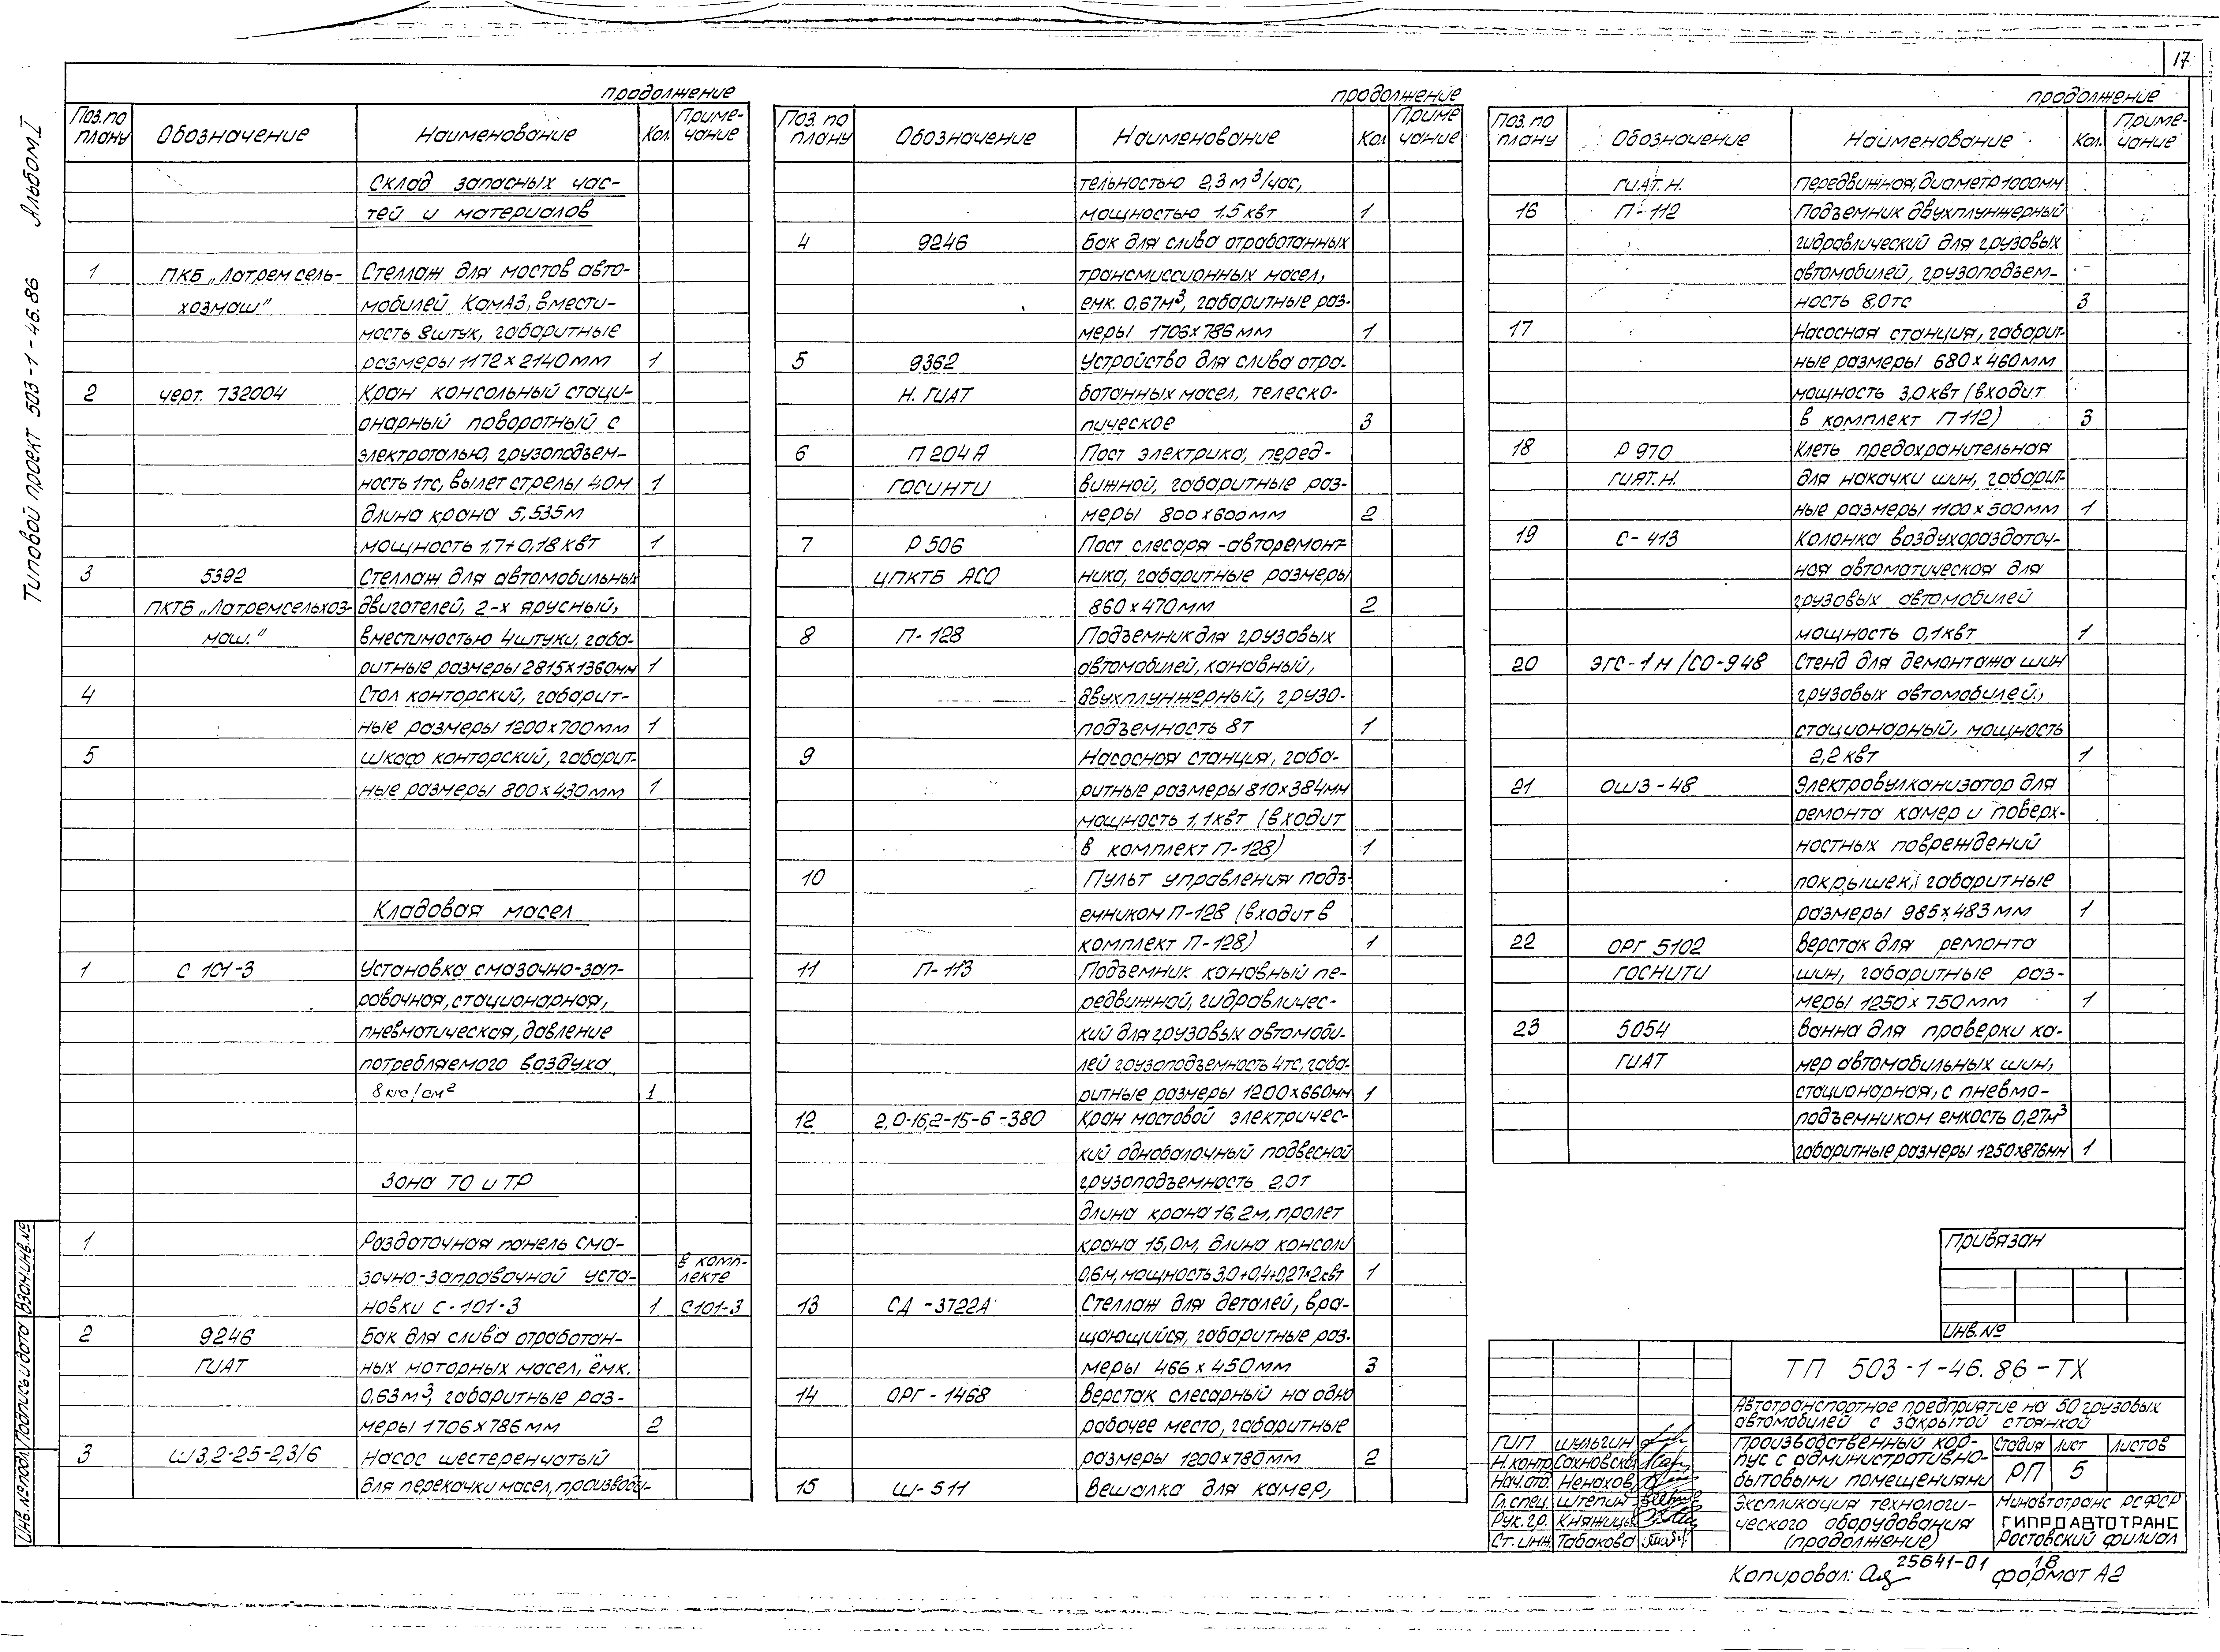 17
Типовой проект 503-1-46.86 Альбом I
продолжение
Поз. по плану Обозначение Наименование Кол. Приме-чание
Склад запасных час-
тей и материалов
1 ПКБ „Латремсель- Стеллаж для мостов авто-
хозмаш" мобилей КамАЗ, вмести-
мость 8штук, габаритные
размеры 1172х2140мм 1
2 черт. 732004 Кран консольный стаци-
онарный поворотный с
электроталью, грузоподъем-
ность 1тс, вылет стрелы 4.0м 1
длина крана 5,535м
мощность 1,7+0,18 квт 1
3 5392 Стеллаж для автомобильных
ПКТБ „Латремсельхоз- двигателей, 2-х ярусный,
маш." вместимостью 4штуки, габа-
ритные размеры 2815х1360мм 1
4 Стол конторский, габарит-
ные размеры 1200х700мм 1
5 шкаф конторский, габарит-
ные размеры 800х430мм 1
Кладовая масел
1 С 101-3 Установка смазочно-зап-
равочная, стационарная,
пневматическая, давление
потребляемого воздуха
8кгс/см² 1
Зона ТО и ТР
1 Раздаточная панель сма-
зочно-заправочной уста- в комп-лекте
новки с-101-3 1 С101-3
2 9246 Бак для слива отработан-
ГИАТ ных моторных масел, ёмк.
0,63м³, габаритные раз-
меры 1706х786мм 2
3 Ш3,2-25-2,3/6 Насос шестеренчатый
для перекачки масел, производи-
продолжение
Поз. по плану Обозначение Наименование Кол Приме чание
тельностью 2,3м³/час,
мощностью 1.5 квт 1
4 9246 Бак для слива отработанных
трансмиссионных масел,
емк. 0,67м³, габаритные раз-
меры 1706х786мм 1
5 9362 Устройство для слива отра-
Н. ГИАТ ботанных масел, телеско-
пическое 3
6 П 204 А Пост электрика, перед-
ГОСИНТИ вижной, габаритные раз-
меры 800х600мм 2
7 Р 506 Пост слесаря-авторемонт-
ЦПКТБ АСО ника, габаритные размеры
860х470мм 2
8 П-128 Подъемник для грузовых
автомобилей, канавный,
двухплунжерный, грузо-
подъемность 8т 1
9 Насосная станция, габа-
ритные размеры 810х384мм
мощность 1,1квт (входит
в комплект П-128) 1
10 Пульт управления подъ-
емником П-128 (входит в
комплект П-128) 1
11 П-113 Подъемник канавный пе-
редвижной, гидравличес-
кий для грузовых автомоби-
лей грузоподъемность 4тс, габа-
ритные размеры 1200х660мм 1
12 2,0-16,2-15-6-380 Кран мостовой электричес-
кий однобалочный подвесной
грузоподъемность 2,0т
длина крана 16,2м, пролет
крана 15,0м, длина консоли
0,6м, мощность 3,0+0,4+0,27*2квт 1
13 СД-3722А Стеллаж для деталей, вра-
щающийся, габаритные раз-
меры 466х450мм 3
14 ОРГ-1468 Верстак слесарный на одно
рабочее место, габаритные
размеры 1200х780мм 2
15 Ш-511 Вешалка для камер,
продолжение
Поз. по плану Обозначение Наименование Кол. Приме-чание
ГИАТ.Н. передвижная, диаметр 1000мм
16 П-112 Подъемник двухплунжерный
гидравлический для грузовых
автомобилей, грузоподъем-
ность 8,0тс 3
17 Насосная станция, габарит-
ные размеры 680х460мм
мощность 3,0 квт (входит
в комплект П112) 3
18 Р 970 Клеть предохранительная
ГИАТ.Н. для накачки шин, габарит-
ные размеры 1100х500мм 1
19 С-413 Колонка воздухораздаточ-
ная автоматическая для
грузовых автомобилей
мощность 0,1квт 1
20 ЭГС-1м/СО-948 Стенд для демонтажа шин
грузовых автомобилей,
стационарный, мощность
2,2 квт 1
21 ОШЗ-48 Электровулканизатор для
ремонта камер и поверх-
ностных повреждений
покрышек, габаритные
размеры 985х483мм 1
22 ОРГ 5102 Верстак для ремонта
ГОСНИТИ шин, габаритные раз-
меры 1250х750мм 1
23 5054 Ванна для проверки ка-
ГИАТ мер автомобильных шин,
стационарная, с пневмо-
подъемником емкость 0,27м³
габаритные размеры 1250х876мм 1
Привязан
Инв.№
ТП 503-1-46.86-ТХ
Автотранспортное предприятие на 50 грузовых
автомобилей с закрытой стоянкой
ГИП Шульгин
Н.контр Сахновская
Нач.отд. Ненахов
Гл.спец. Штепин
Рук.гр. Княжицы
Ст.инж. Табакова
Производственный кор-
пус с административно-
бытовыми помещениями
Стадия Лист Листов
РП 5
Экспликация технологи-
ческого оборудования
(продолжение)
Минавтотранс РСФСР
ГИПРОАВТОТРАНС
Ростовский филиал
Копировал: 25641-01 18 формат А2
Инв.№подл. Подпись и дата Взам.инв.№